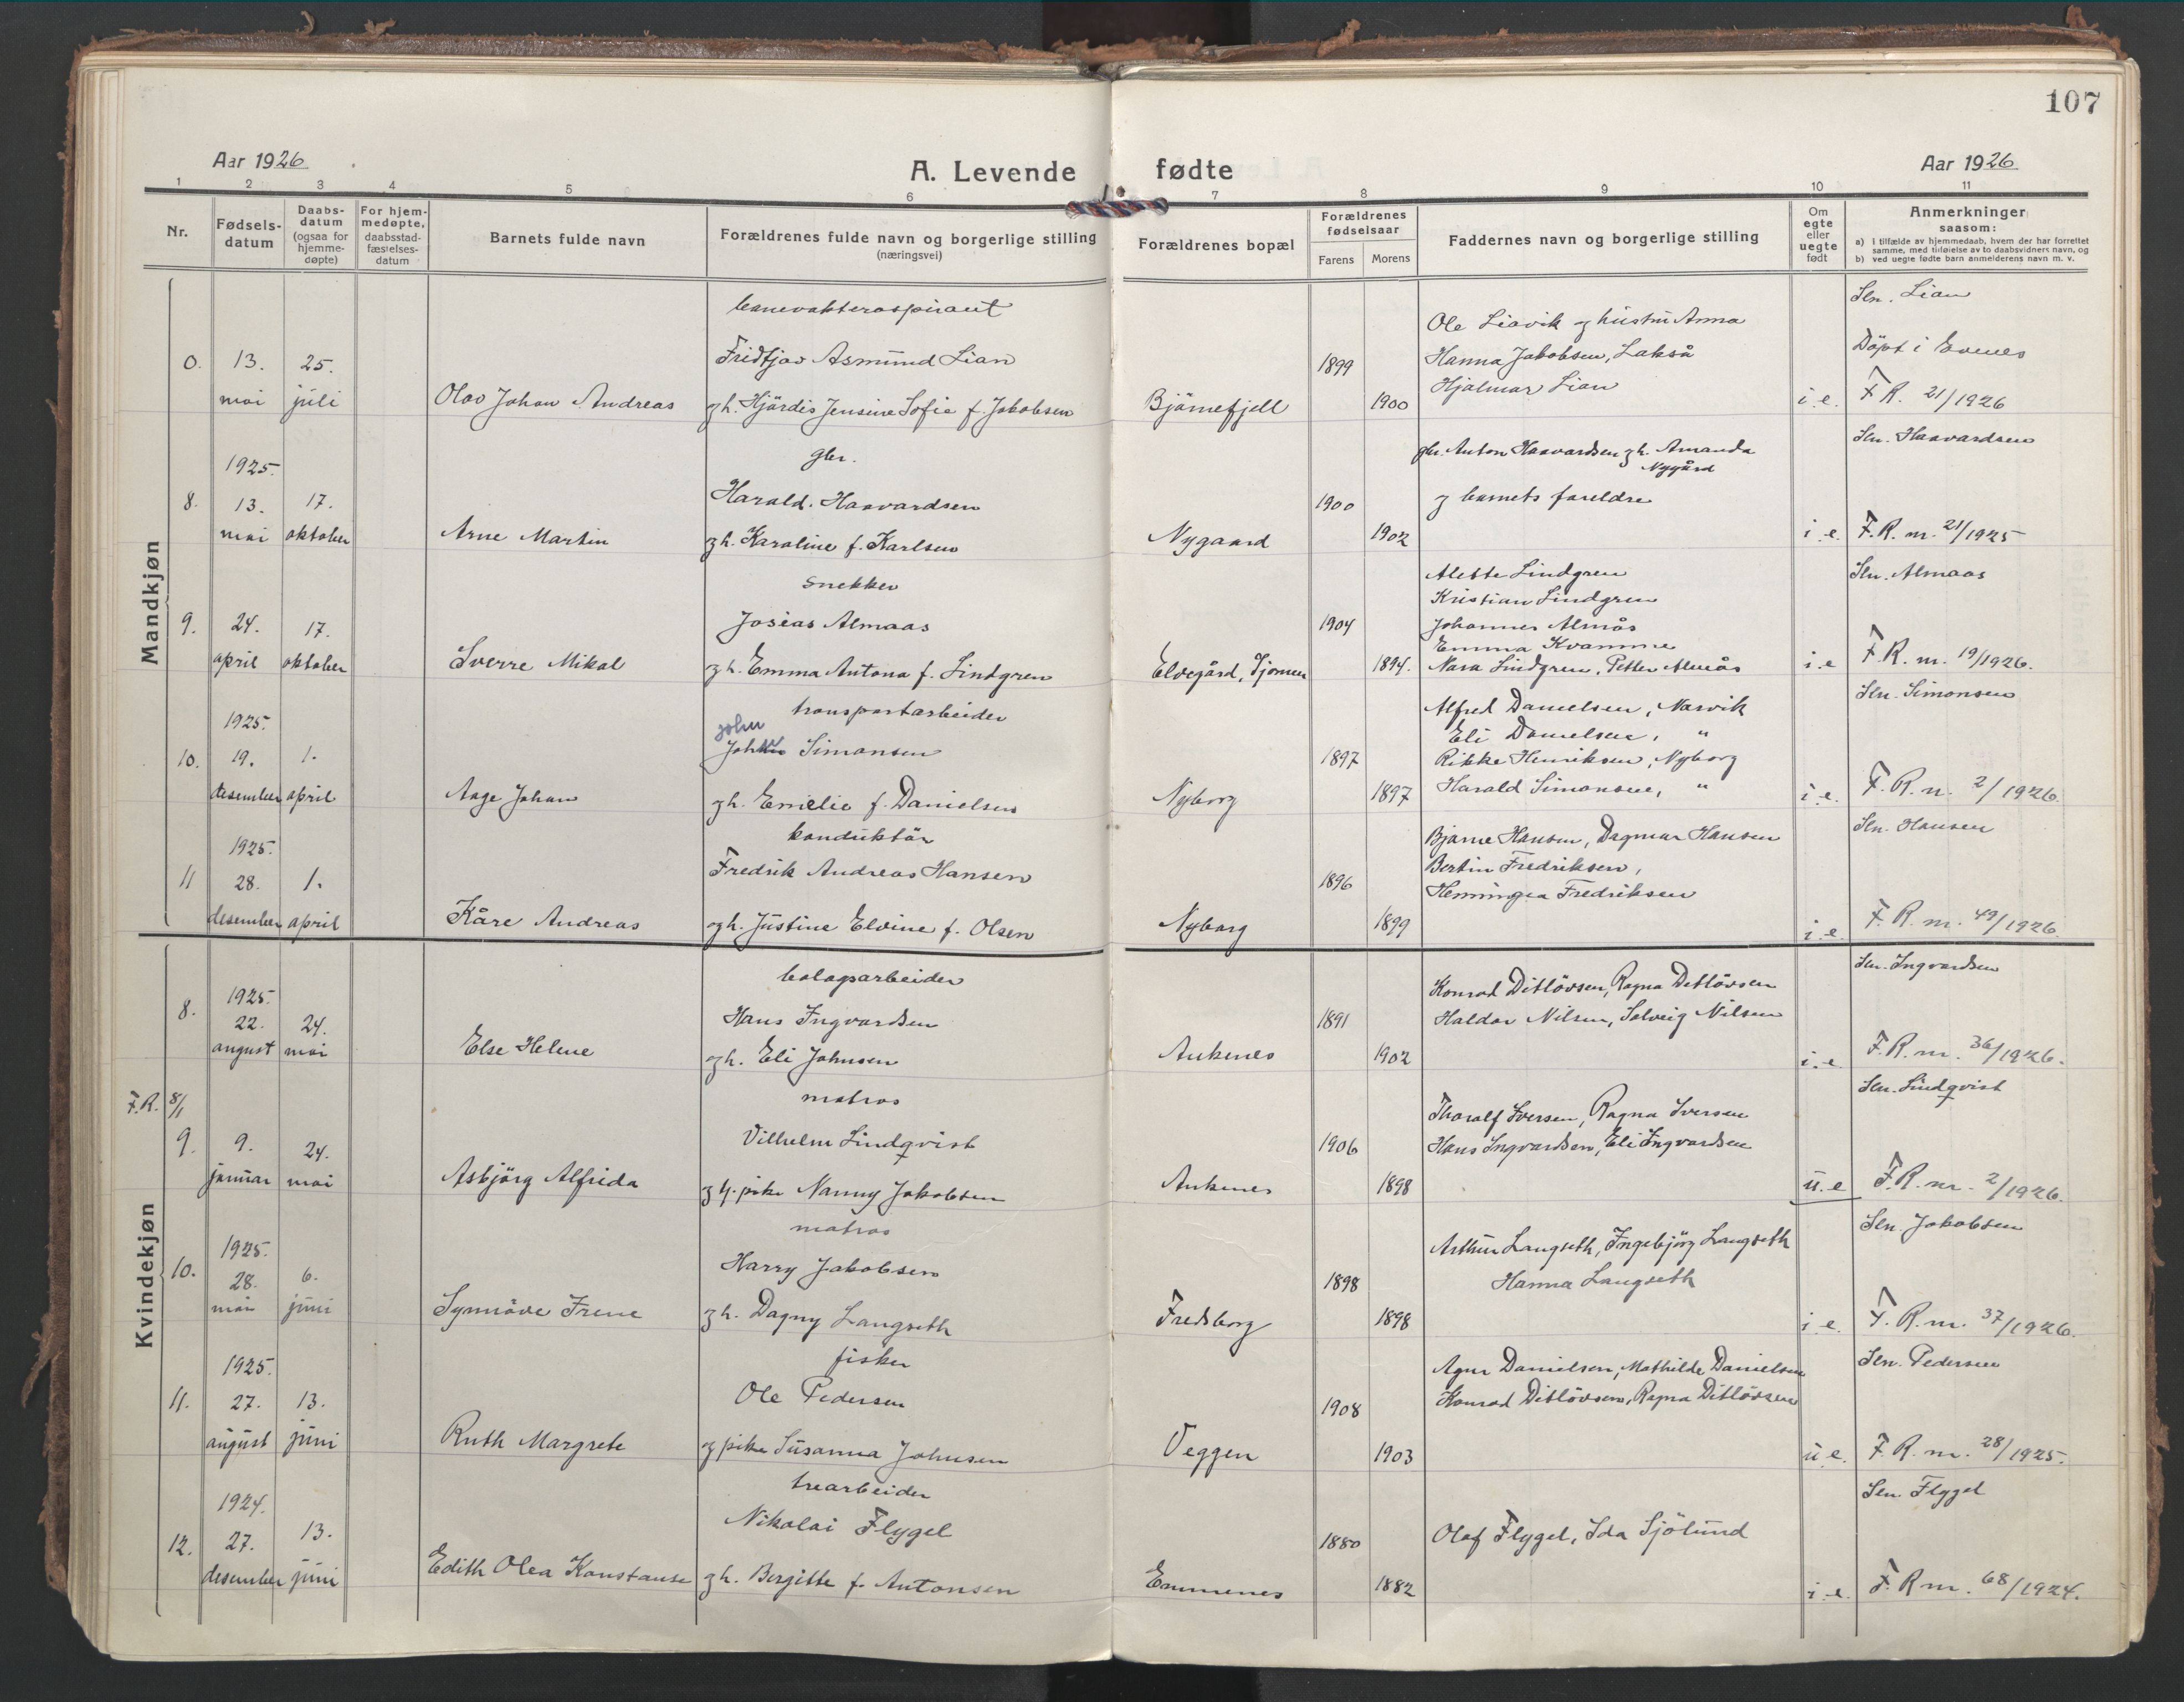 107
Aar 1926
A. Levende fødte
Aar 1926
1 2 3 4 5 6 7 8 9 10 11
Nr.
Fødsels-
datum
Daabs-
datum
(ogsaa for
hjemme-
døpte)
For hjem-
medøpte,
daabsstad-
fæstelses-
datum
Barnets fulde navn
Forældrenes fulde navn og borgerlige stilling
(næringsvei)
Forældrenes bopæl
Forældrenes
fødselsaar
Farens Morens
Faddernes navn og borgerlige stilling
Om
egte
eller
uegte
født
Anmerkninger
saasom:
a) i tilfælde av hjemmedaab, hvem der har forrettet
samme, med tilføielse av to daabsvidners navn, og
b) ved uegte fødte barn anmelderens navn m. v.
Mandkjøn
0. 13. mai
25. juli
Olav Johan Andreas
banevokteraspirant
Fridtjov Asmund Lian
g h. Hjördis Jensine Sofie f. Jakobsen
Bjørnefjell
1899
1900
Ole Liavik og hustru Anna
Hanna Jakobsen, Lakså
Hjalmar Lian
i. e.
Sln. Lian
Döpt i Evenes
F R. 21/1926
8. 1925. 13. mai
17. oktober
Arne Martin
gbr.
Harald Haavardsen
g h. Karoline f. Karlsen
Nygaard
1900
1902
gbr. Anton Haavardsen g h. Amanda
Nygård
og barnets foreldre
i. e.
Sln. Haavardsen
F. R. nr. 21/1925
9. 24. april
17. oktober
Sverre Mikal
snekker
Josias Almaas
g h. Emma Antona f. Lindgren
Elvegård,
1904
1894.
Alette Lindgren
Kristian Lindgren
Johannes Almås
Emma Kvamme
Nara Lindgren, Petter Almås
i. e
Sln. Almaas
F. R. nr. 19/1926.
10. 1925. 19. desember
1. april
Aage Johan
transportarbeider
john
Simonsen
g h. Emelie f. Danielsen
Nyborg
1897
1897
Alfred Danielsen, Narvik
Eli Danielsen, "
Rikke Henriksen, Nyborg
Harald Simonsen, "
i. e.
Sln. Simonsen
F. R. n. 2/1926.
11 1925. 28. desember
1. april
Kåre Andreas
konduktör
Fredrik Andreas Hansen
og h. Justine Elvine f. Olsen
Nyborg
1896
1899
Bjarne Hansen, Dagmar Hansen
Bertin Fredriksen,
Henningea Fredriksen
i. e.
Sln. Hansen
F. R. nr. 49/1926.
Kvindekjøn
8. 1925. 22. august
24. mai
Else Helene
bolagsarbeider
Hans Ingvardsen
og h. Eli Johnsen
Ankenes
1891
1902
Konrad Ditlövsen, Ragna Ditlövsen
Haldor Nilsen, Solveig Nilsen
i. e.
Sln. Ingvardsen
F. R. nr. 36/1926.
F.R. 8/1
9. 9. januar
24. mai
Asbjörg Alfrida
matros
Vilhelm Lindqvist
pike Nanny Jakobsen
Ankenes
1906
1898
Thoralf Iversen, Ragna Iversen
Hans Ingvardsen, Eli Ingvardsen
u. e
Sln. Lindqvist
F. R. nr. 2/1926.
10. 1925. 28. mai
6. juni
Synnöve Irene
matros
Harry Jakobsen
g h. Dagny Langseth
Fredsborg
1898
1898
Arthur Langseth, Ingebjörg Langseth
Hanna Langseth
i. e.
Sln. Jakobsen
F. R. nr. 37/1926.
11. 1925. 27. august
13. juni
Ruth Margrete
fisker
Ole Pedersen
og pike Susanna Johnsen
Veggen
1908
1903
Danielsen, Mathilde Danielsen
Konrad Ditlövsen, Ragna Ditlövsen
u. e.
Sln. Pedersen
F. R. nr. 28/1925.
12. 1924. 27. desember
13. juni
Edith Olea Konstanse
trearbeider
Nikolai Flygel
g h. Bergitte f. Antonsen
Emmenes
1880
1882
Olaf Flygel, Ida Sjölund
i. e.
Sln. Flygel
F. R nr. 68/1924.